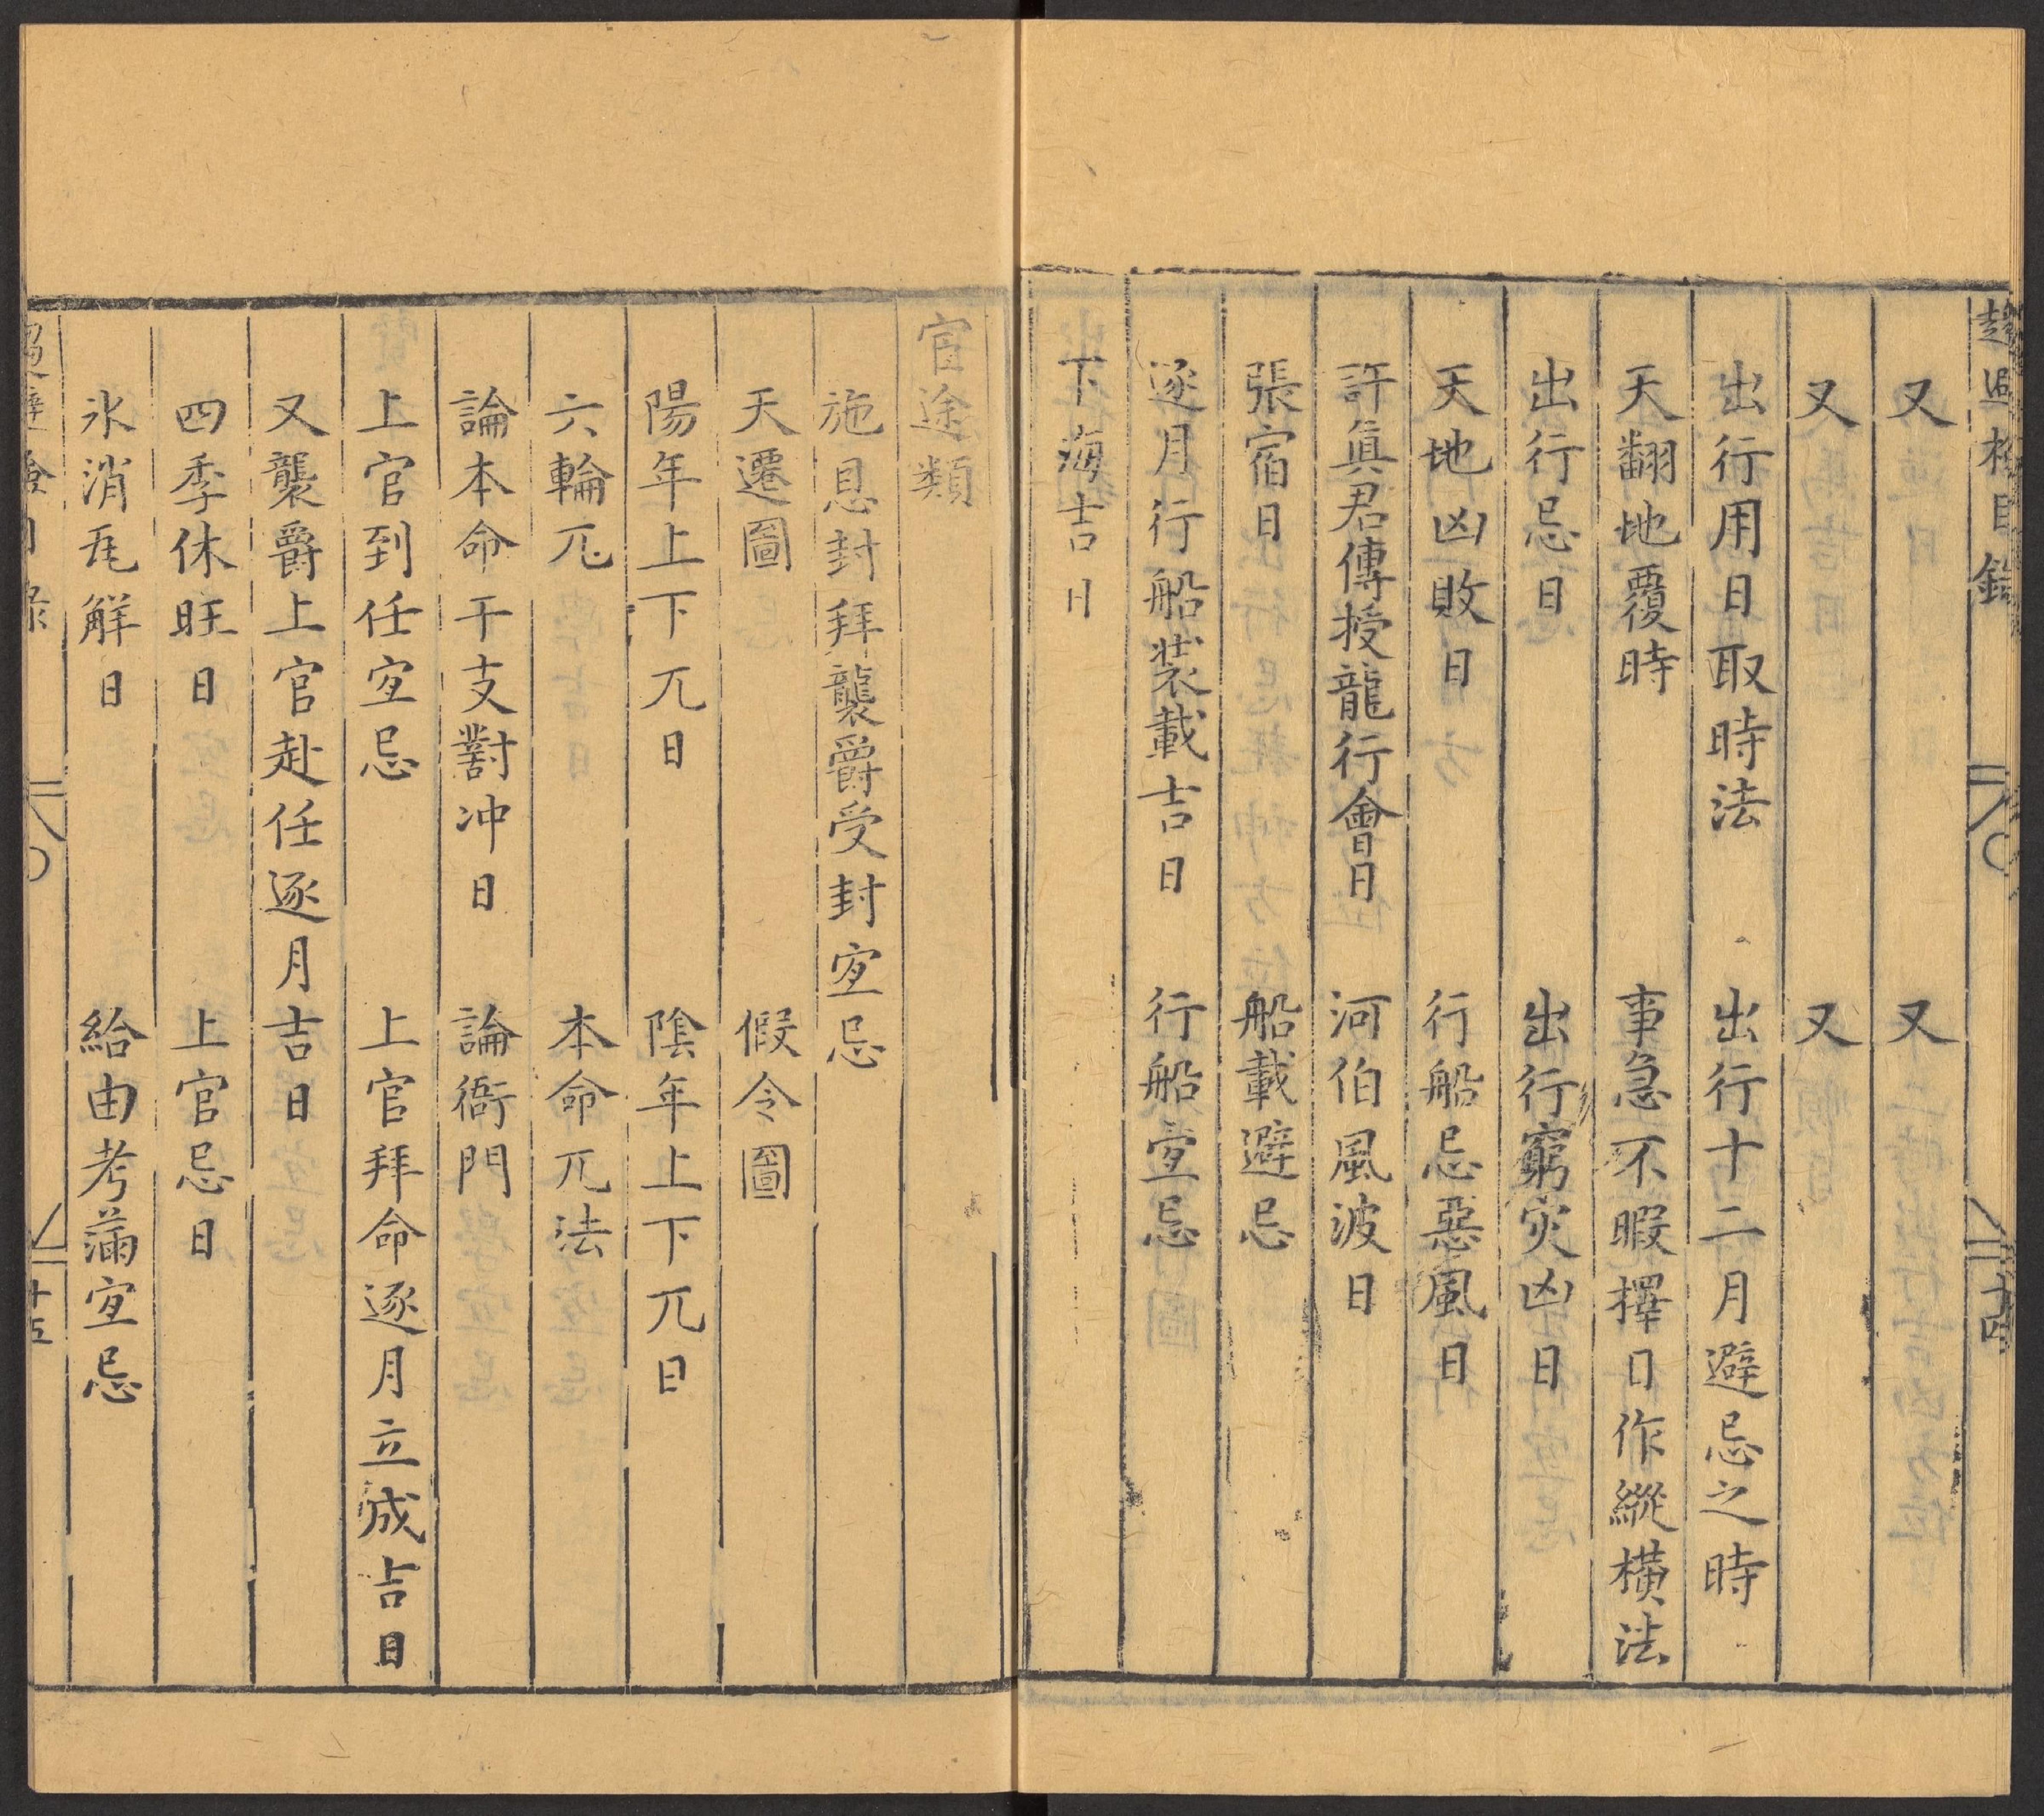 又　又
又　又
出行用日取時法　出行十二月避忌之時
天翻地覆時　事急不暇擇日作縱橫法
出行忌日　出行窮灾凶日
天地凶敗日　行船忌惡風日
許眞君傳授龍行會日　河伯風波日
張宿日　船載避忌
逐月行船裝載吉日　行船宜忌
下海吉日
官途類
施恩封拜襲爵受封宜忌
天遷圖　假令圖
陽年上下兀日　陰年上下兀日
六輪兀　本命兀法
論本命干支對冲日　論衙門
上官到任宜忌　上官拜命逐月立成吉日
又襲爵上官赴任逐月吉日
四季休旺日　上官忌日
氷消瓦解日　給由考滿宜忌
十五